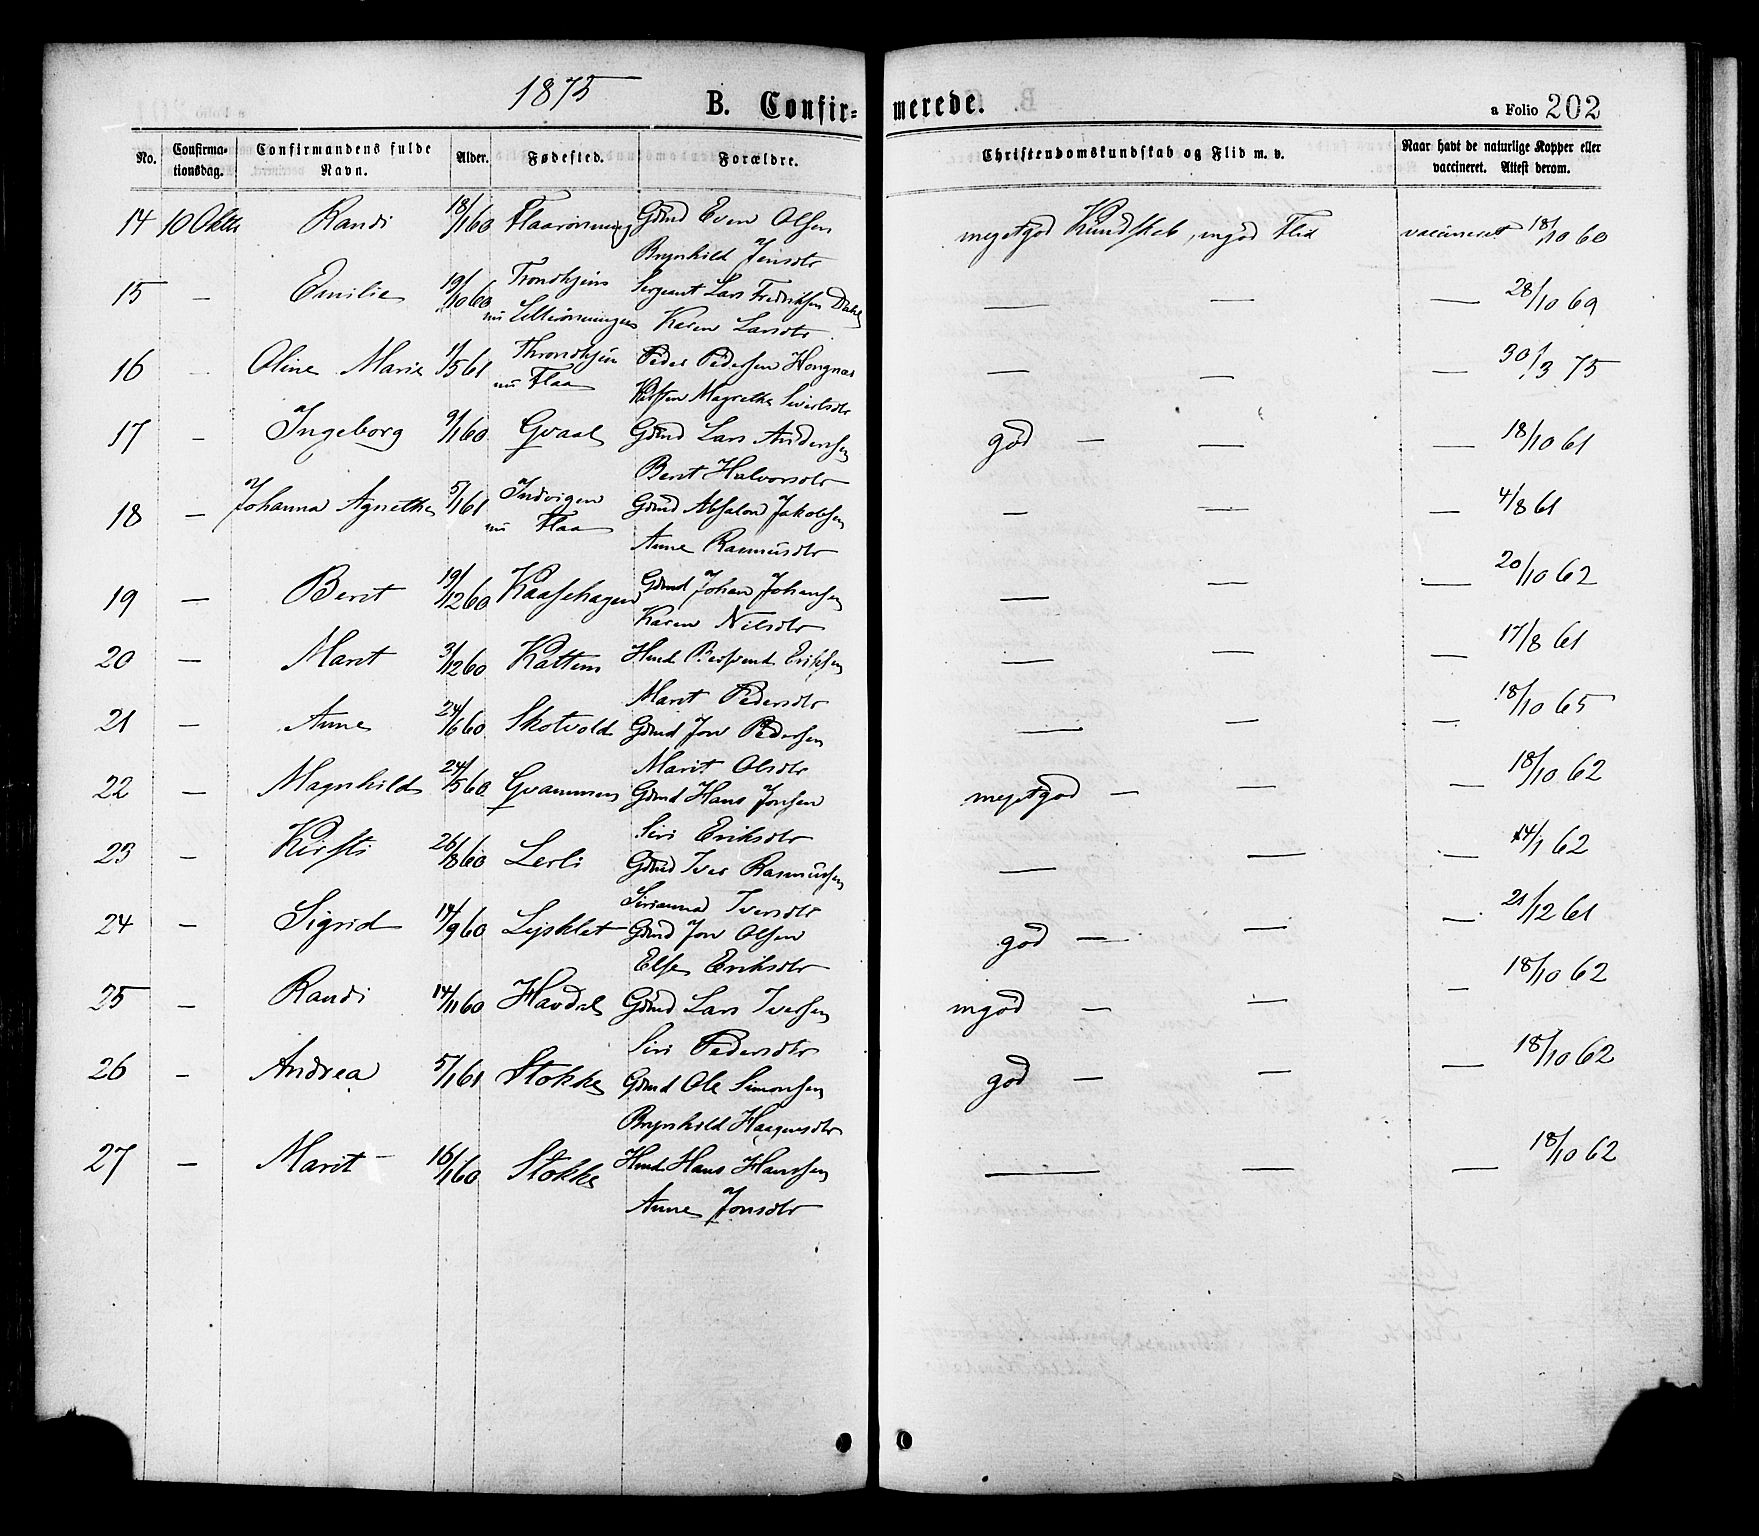 1875
B. Confir- merede.
a Folio 202
No. Confirma- Confirmandens fulde Alder. Fødested. Forældre. Christendomskundskab og Flid m. v. Naar havt de naturlige Kopper eller
tionsdag. Navn. vaccineret. Attest derom.
14 10 Oktbr Randi 18/1 60 Flaarønning Gbmd Even Olsen megetgod Kundskab, mgod Flid vaccineret 18/10 60
Brynhild Jensdtr
15 — Emilie 19/10 60 Trondhjem Sergeant Lars Fredriksen Dahl — — — 28/10 69
nu Karen Larsdtr
16 Oline Marie 1/5 61 Throndhjem Peder Pedersen Hongnæs — — — 30/3 75
nu Flaa Magrethe Sivertsdtr
17 — Ingeborg 9/1 60 Gvaal Gbmd Lars Andersen god — — — 18/10 61
Berit Halvorsdtr
18 — Johanna Agnethe 5/1 61 Indvigen Gbmd Absalon Jakobsen — — — 4/8 61
nu Flaa Anne Rasmusdtr
19 — Berit 19/12 60 Kaasehagen Gbmd Johan Johansen — — — 20/10 62
Karen Nilsdtr
20 — Marit 3/12 60 Kattem Hmd Eriksen — — — 17/8 61
Marit Pedersdtr
21 — Anne 24/6 60 Skotvold Gbmd Jon Pedersen — — — 18/10 65
Marit Olsdtr
22 — Magnhild 24/5 60 Gvammen Gbmd Hans Jonsen megetgod — — — 18/10 62
Siri Eriksdtr
23 — Kirsti 26/8 60 Lerli Gbmd Iver Rasmussen — — — 14/1 62
Sirianna Iversdtr
24 — Sigrid 14/9 60 Gbmd Jon Olsen god — — — 21/12 61
Else Eriksdtr
25 — Randi 14/11 60 Havdal Gbmd Lars Iversen mgod — — — 18/10 62
Siri Pedersdtr
26 — Andrea 5/1 61 Stokke Gbmd Ole Simonsen god — — — 18/10 62
Brynhild Haagensdtr
27 — Marit 16/1 60 Stokke Hmd Hans Hanssen — — — 18/10 62
Anne Jonsdtr